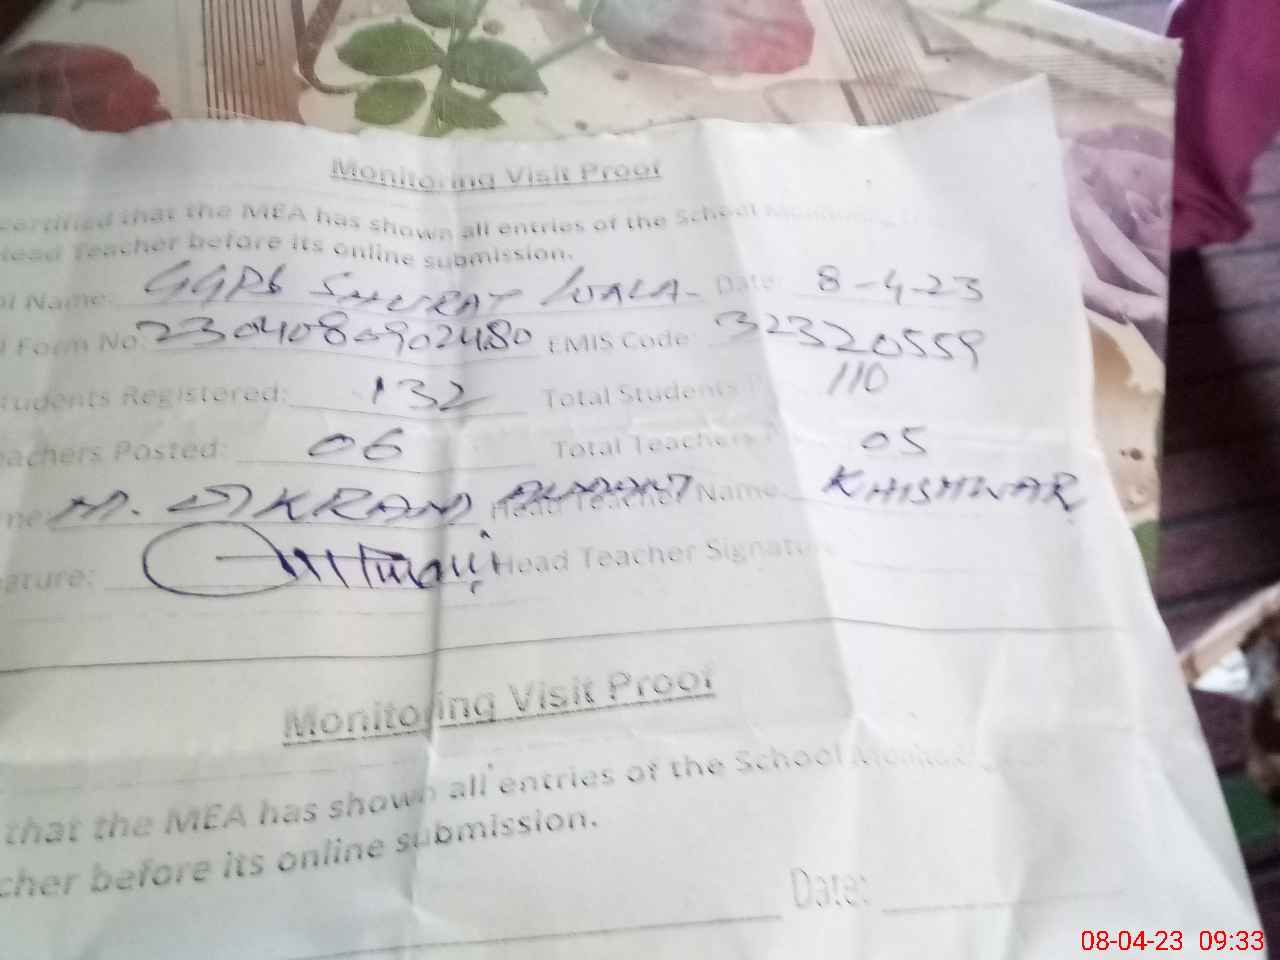 Monitoring Visit Proof
certified that the MEA has shown all entries of the School
Head Teacher before its online submission.
ol Name: GGPS SHUKRAT WALA Date: 8-4-23
l Form No: 2304080902480 EMIS Code: 32320559
tudents Registered: 132 Total Students P 110
eachers Posted: 06 Total Teachers P 05
me: M. IKRAM Head Teacher Name: KHISHWAR
ature: Head Teacher Signature
Monitoring Visit Proof
that the MEA has shown all entries of the School
cher before its online submission.
Date:
08-04-23 09:33